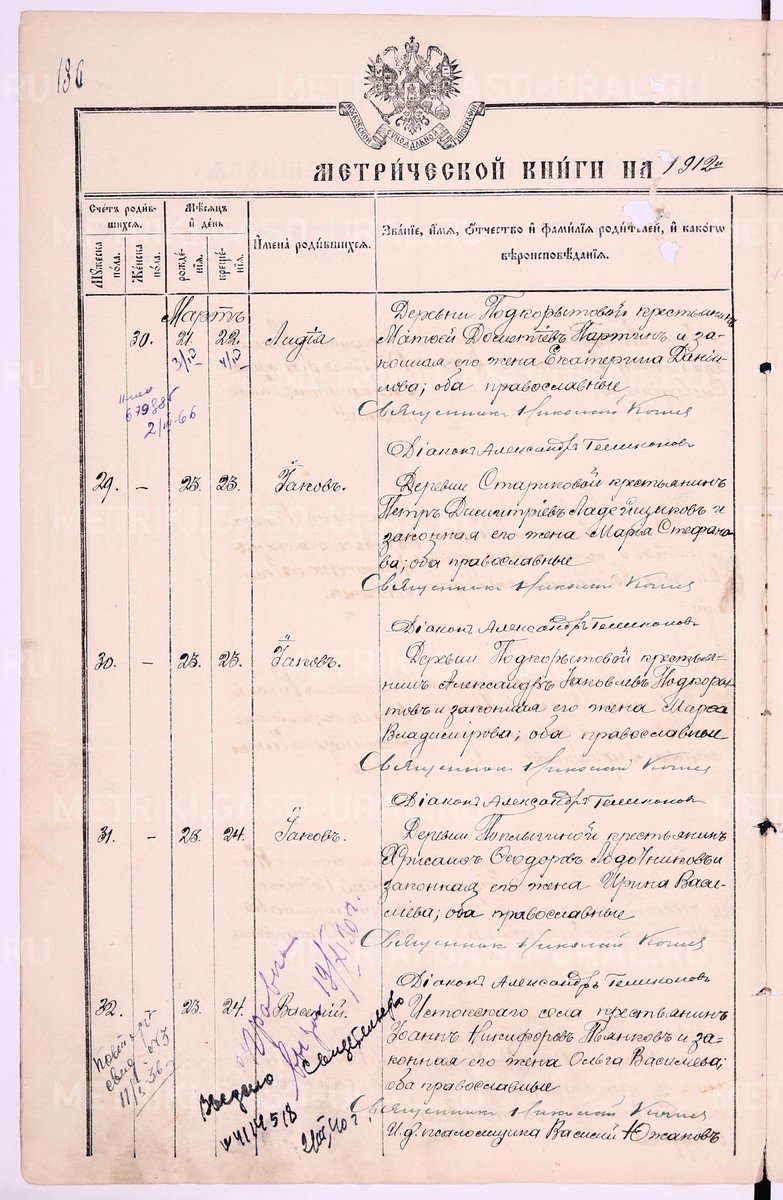 136
МОСКОВСКОЙ СѴНОДАЛЬНОЙ ТИПОГРАФІИ
МЕТРИ́ЧЕСКОЙ КНИ́ГИ НА 1912 й
Счетъ родив-
шихся.
Мꙋжеска пола.
Женска пола.
Мѣсяцъ
и день
рожде-
нія.
креще-
нія.
Имена родившихся.
Званіе, имя, отчество и фамилія родителей, и какогѡ
вѣроисповѣданія.
Мартъ
30. 21. 22. Лидія
3/IV 4/IV
Деревни Подкорытовой крестьянин
Матѳей Дометіевъ Партинъ и за-
конная его жена Екатерина Даніи-
лова; оба православные
Священникъ Николай
Діаконъ Александръ
679886
2/IV-66
29. - 23. 23. Іаковъ.
Деревни Стариковой крестьянинъ
Петръ Димитріевъ Ладейщиковъ и
законная его жена Марѳа Стефано-
ва; оба православные
Священникъ Николай
Діаконъ Александръ
30. - 23. 23. Іаковъ.
Деревни Подкорытовой крестья-
нинъ Александръ Іаковлевъ Подкоры-
товъ и законная его жена Марѳа
Владимірова; оба православные
Священникъ Николай
Діаконъ Александръ
31. - 23. 24. Іаковъ.
Деревни Поплыгиной крестьянинъ
Хрисанѳъ Ѳеодоровъ Лодочниковъ и
законная его жена Ирина Васи-
ліева; оба православные
Священникъ Николай
Діаконъ Александръ
32. 23. 24. Василій.
Истокскаго села крестьянинъ
Іоаннъ Никифоровъ Пьянковъ и за-
конная его жена Ольга Василіева;
оба православные
Священникъ Николай
И. д. псаломщика Василій Южаковъ
Выдано
свидетельство